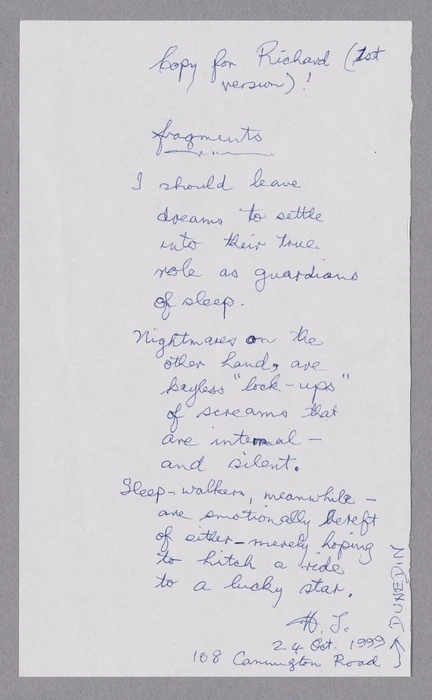 Copy for Richard (1st
version)!
fragments
I should leave
dreams to settle
into their true
role as guardians
of sleep.
Nightmares on the
other hand, are
keyless "lock-ups"
of screams that
are internal -
and silent.
Sleep-walkers, meanwhile -
are emotionally bereft
of either - merely hoping
to hitch a ride
to a lucky star.
H. T.
24 Oct. 1999
108 Cannington Road
DUNEDIN